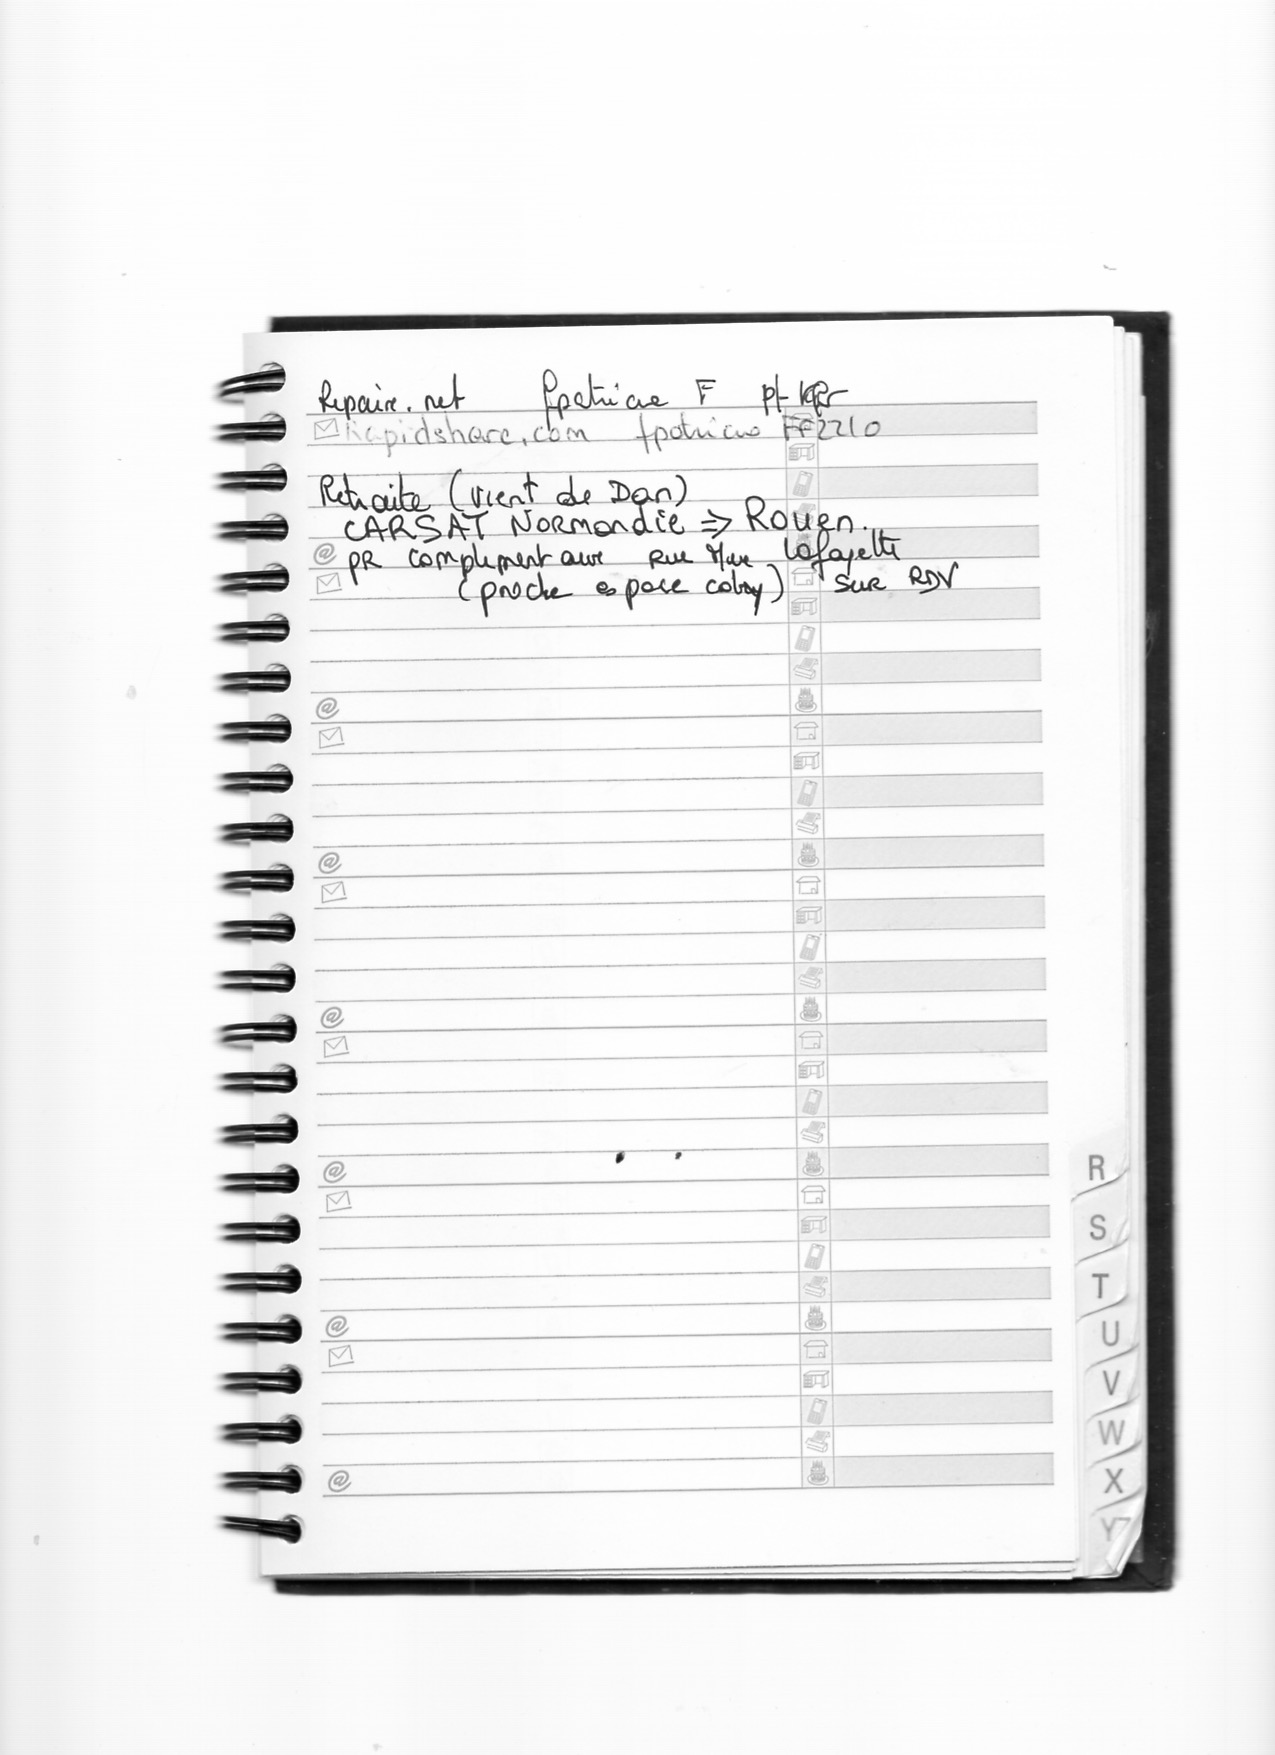 Repaire.net fpatriciae F
Rapidshare.com fpatriciae FF2210
Retraite (vient de Dan)
CARSAT Normandie => Rouen.
@ PR complementaire Rue Lafayette
(proche espace coby) sur RDV
@
@
@
@
R
@
S
T
U
V
W
X
@
Y